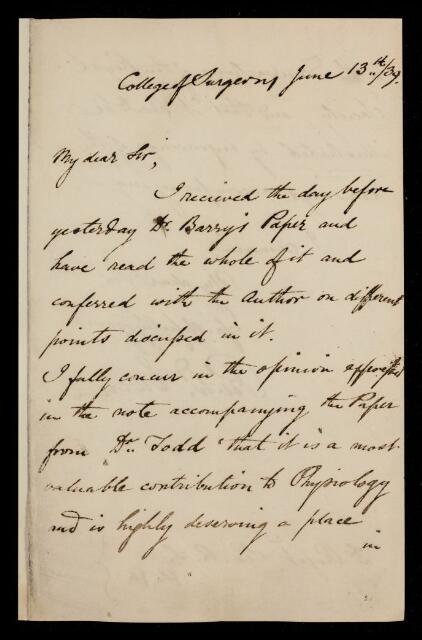 College of Surgeons June 13.th/39.
My dear Sir,
I recieved the day before
yesterday Dr. Barry's Paper and
have read the whole of it and
conferred with the Author on different
points discussed in it.
I fully concur in the opinion expressed
in the note accompanying the Paper
from Dr. Todd that it is a most
valuable contribution to Physiology
and is highly deserving a place
in